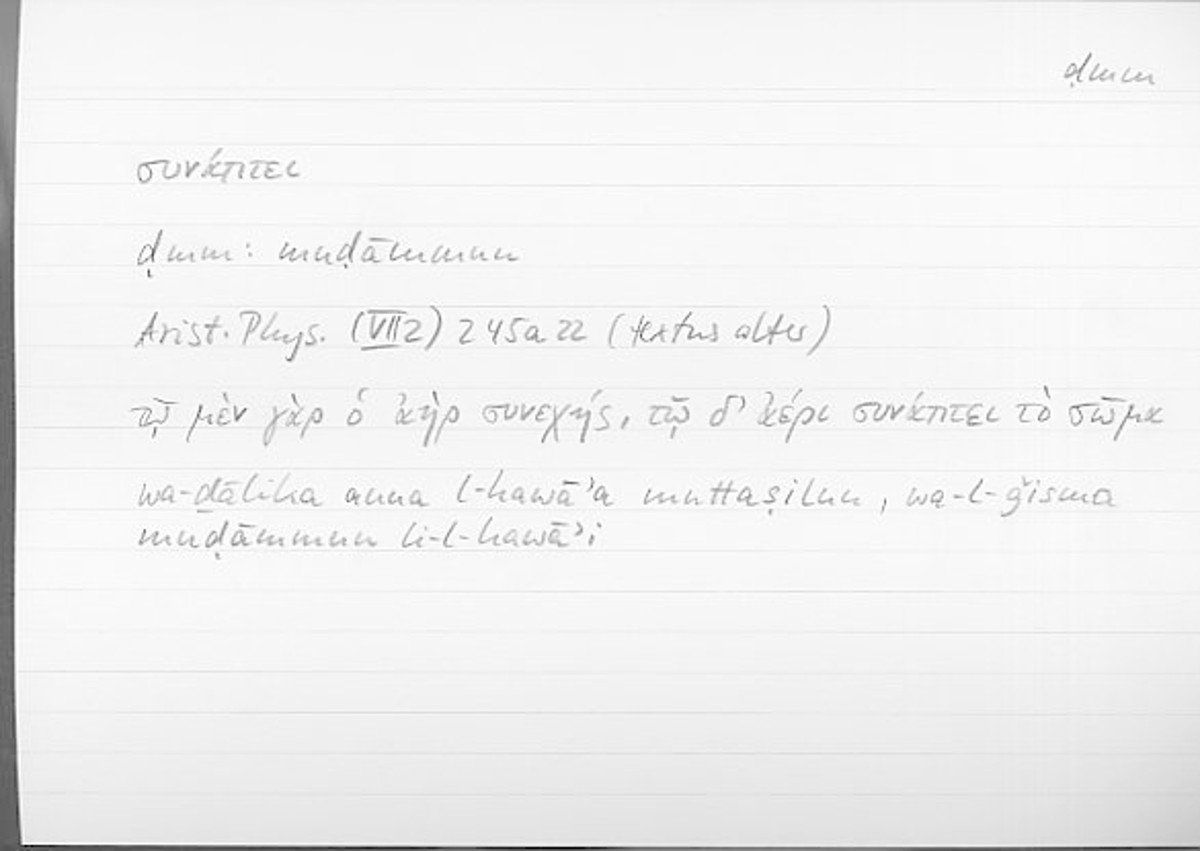 ḍmm
συνάπτει
ḍmm: muḍāmmun
Arist. Phys. (VII 2) 245a22 (textus alter)
τῷ μὲν γὰρ ὁ ἀὴρ συνεχής, τῷ δ’ ἀέρι συνάπτει τὸ σῶμα
wa-ḏālika anna l-hawāʾa muttaṣilun, wa-l-ǧisma
muḍāmmun li-l-hawāʾi